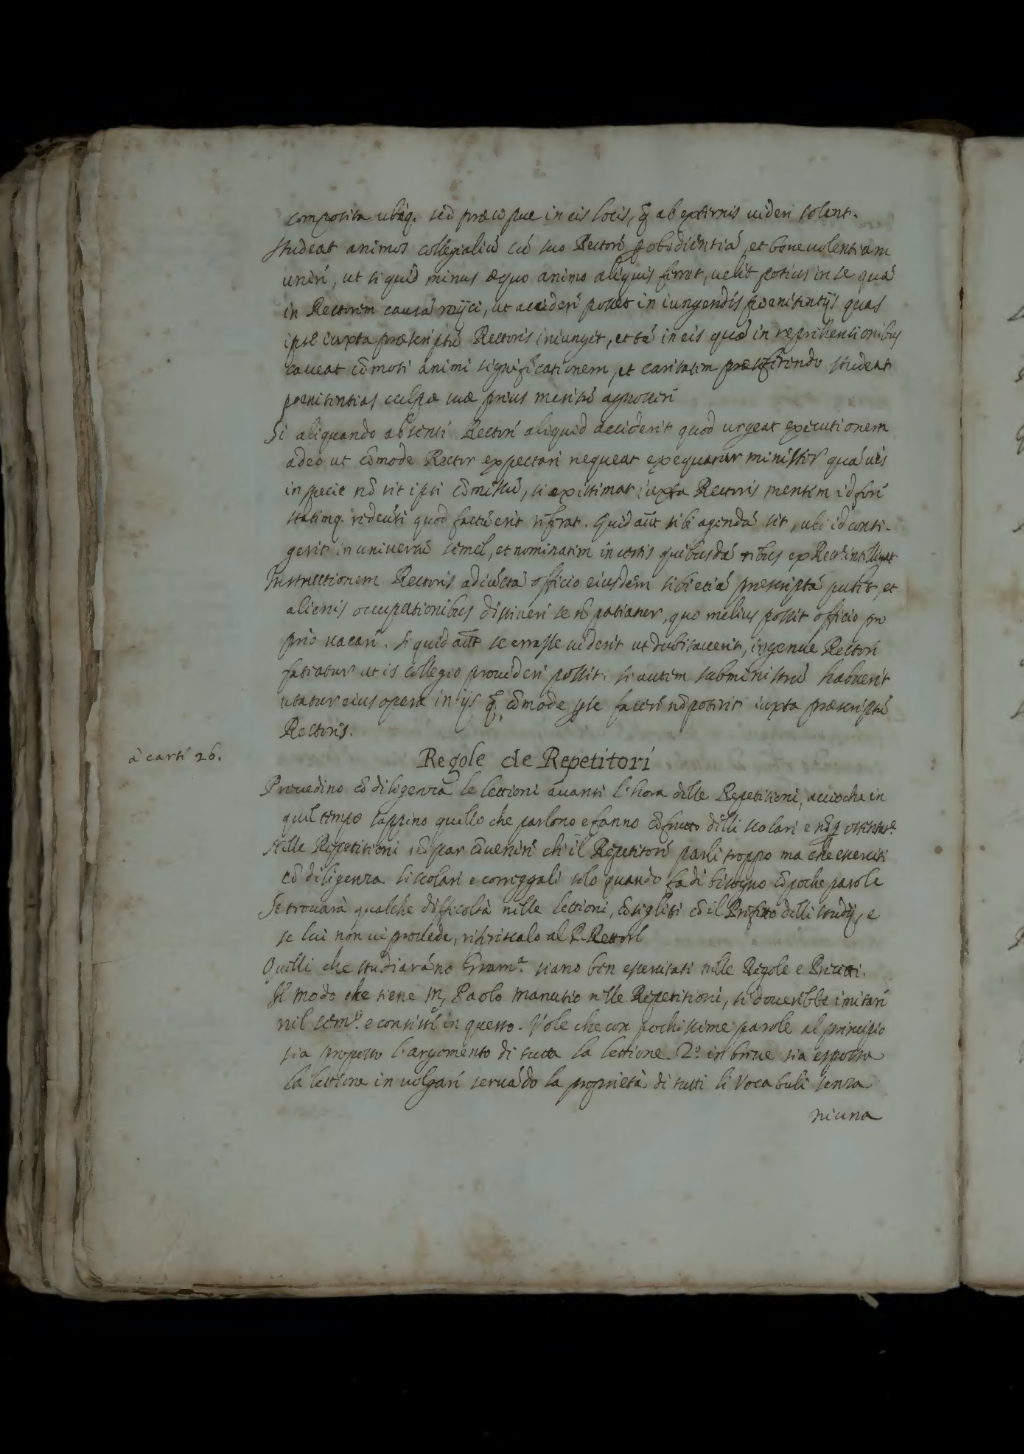 composita ubiq. sed præcipue in eis locis, q̃ ab externis uideri solent.
Studeat animos collegialiũ cũ suo Rectore p obediẽtiã, et beneuolentiam
uniri, ut si quid minus æquo animo aliquis ferret, uelit potius in se quã
in Rectorem causã reijci, ut accideri posset in iungendis pœnitentijs quas
ipse iuxta præscriptũ Rectoris iniungit, et tã in eis quã in reprihensionibus
caueat cõmoti animi significationem, et caritatem præferendo studeat
pœnitentias culpæ suæ prius meritũ agnosceri
Si aliquando absenti Rectori aliquid acciderit quod urgeat executionem
adeo ut cõmode Rector expectari nequeat exequatur minister quãuis
in specie nõ sit ipsi cõmissũ, si existimat iuxta Rectoris mentem id fieri
statimq. redeũti quod factũ erit referat. Quid aũt sibi agendũ sit, ubi id conti-
gerit in uniuersũ semel, et nominatim in certis quibusdã rebus ex Rect
Instructionem Rectoris adiũctã officio eiusdem sibi etiã præscriptã putet, et
alienis occupationibus distineri se nõ patiatur, quo melius possit officio pro
prio uacari. si quid aũt se errasse uiderit ut dubitauerit, ingenue Rectori
fateatur ut is collegio prouideri possit. si autem subministrũ habuerit
utatur eius opera in ijs q̃ cõmode ipse facere nõ poterit iuxta præscriptũ
Rectoris.
à carti 26.
Regole de Repetitori
Preuedino cõ diligenza le lettioni auanti l'hora delle Repetitioni, accioche in
quel tempo sappino quello che parlono e fanno cõ frutto delli scolari e nõ p
Nelle Repetitioni nõ par cõueniri ch'il Repetitore parli troppo ma che eserciti
cõ diligenza li scolari e corregali solo quando fa di bisogno cõ poche parole
Se trouarà qualche difficoltà nelle lettioni, cõsiglisi cõ il Prefetto delli studij, e
se lui non ui prouede, riferiscalo al P. Rettore
Quelli che studiarãno gram.ª siano ben essercitati nelle Regole e
Il modo che tiene M. Paolo manutio nelle Repetitioni, si douerebbe imitari
nel sem.º e consiste in questo. Vole che con pochissime parole al principio
sia proposto l'argomento di tutta la lettione. 2º in breue sia esposta
la lettiona in uolgari seruãdo la proprietà di tutti li Vocabuli senza
niuna